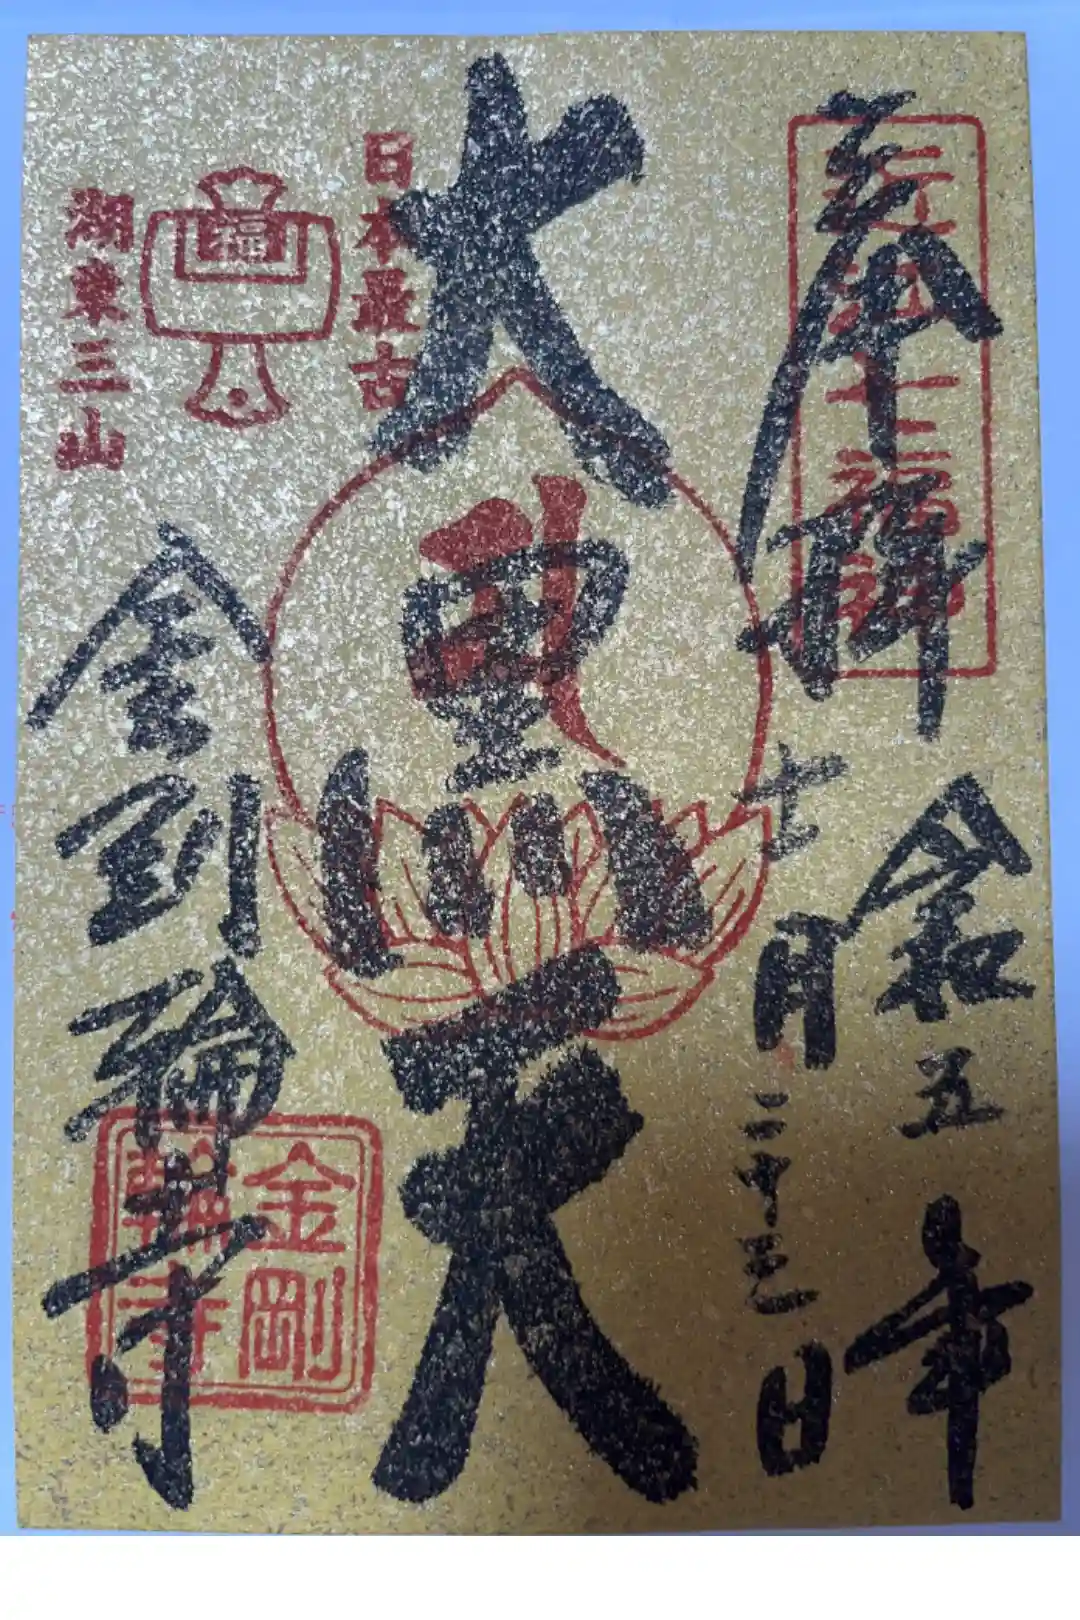 奉拝
近江七福神
令和五年
十一月二十三日
大黒天
日本最古
福
湖東三山
金剛輪寺
金剛
輪寺